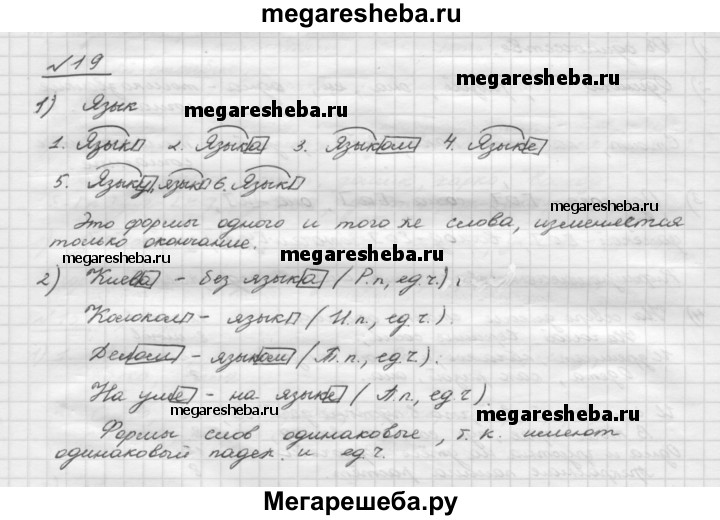 megaresheba.ru
№19
1) Язык
megaresheba.ru
1. Язык 2. Языка 3. Языком 4. Языке
megaresheba.ru
5. Языку, язык 6. Язык
megaresheba.ru
Это формы одного и того же слова, изменяется
только окончание.
megaresheba.ru
2) Киева - без языка (Р.п., ед.ч.),
megaresheba.ru
Колокол - язык (И.п., ед.ч.).
Делом - языком (Т.п., ед.ч.).
На уме - на языке (П.п., ед.ч.).
megaresheba.ru
megaresheba.ru
Формы слов одинаковые, т.к. имеют
одинаковый падеж. и ед.ч.
Мегарешеба.ру